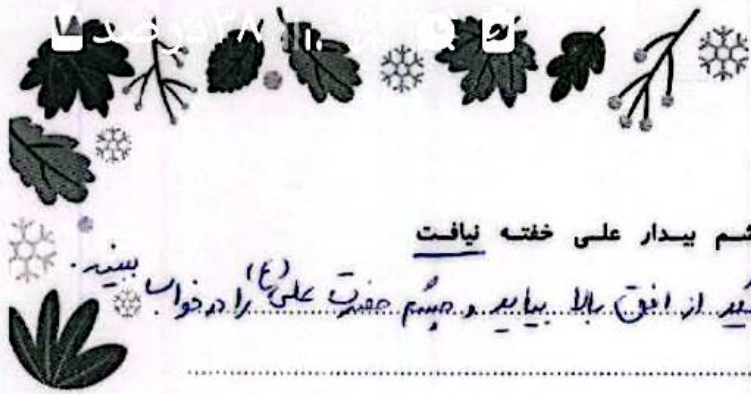 ۲۸ درصد
شم بیدار علی خفته نیافت
از افق بالا بیاید و چشم حضرت علی (ع) را در خواب ببیند.